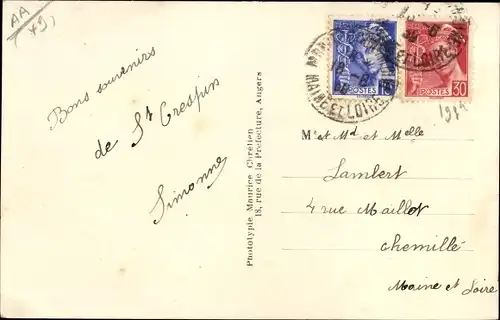 AA
Bons souvenirs
de St Crespin
Simonne
Phototypie Maurice Chrétien
18, rue de la Préfecture, Angers
POSTES
POSTES 30
MAINE-ET-LOIRE
Mr et Md et Melle
Lambert
4 rue Maillot
Chemillé
Maine et Loire